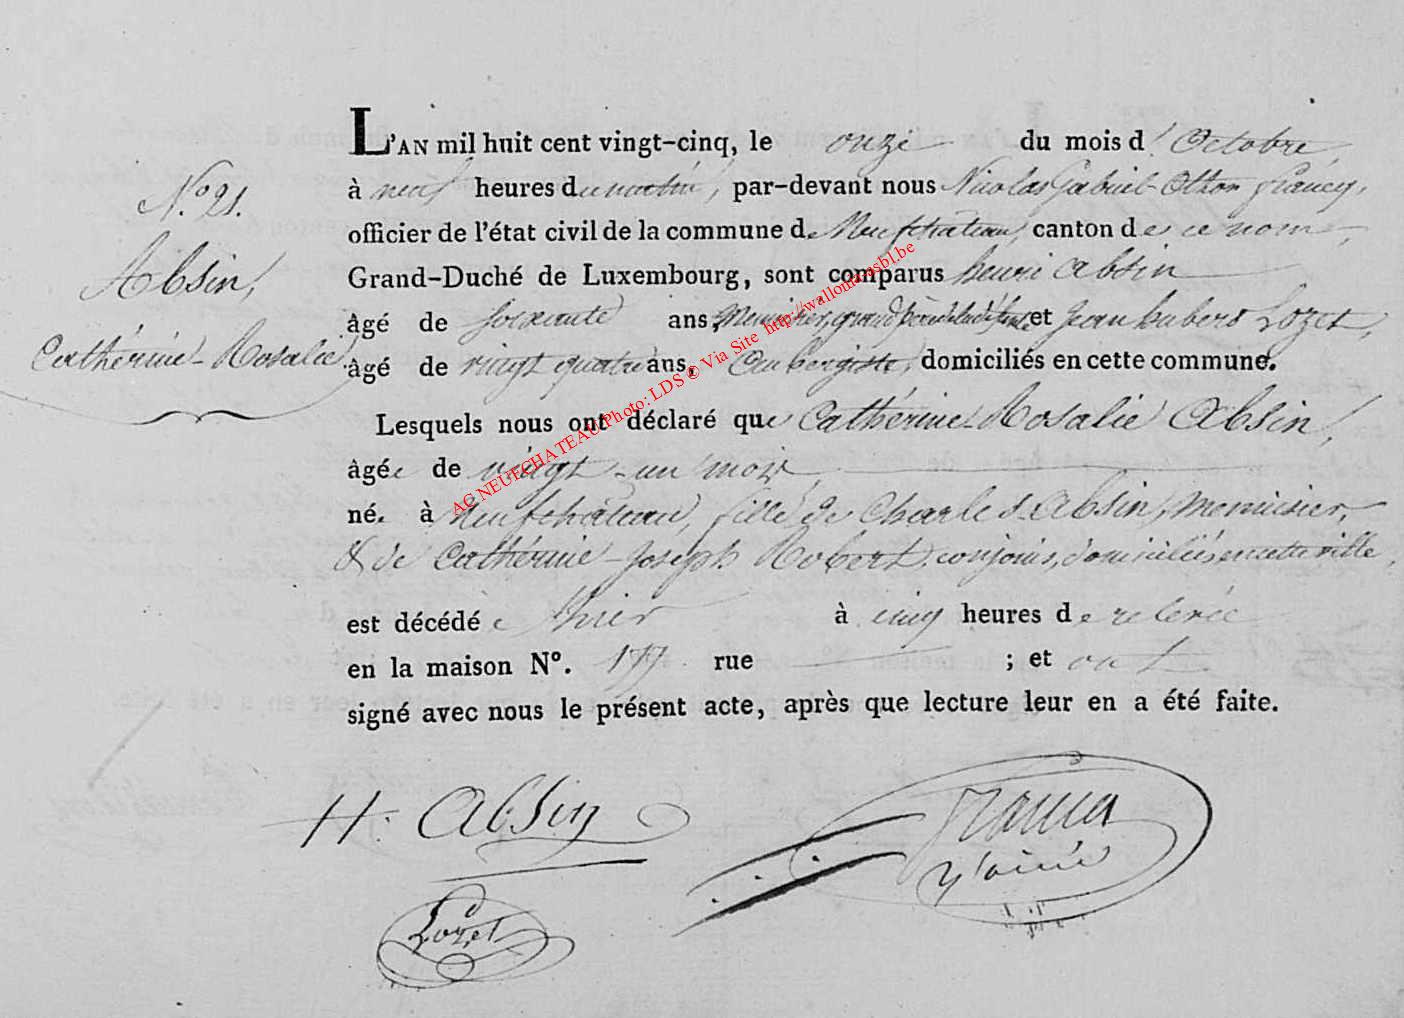 L'AN mil huit cent vingt-cinq, le onze du mois d'Octobre,
à neuf heures du matin, par-devant nous Nicolas Gabriel Othon Francq,
officier de l'état civil de la commune de Neufchateau, canton de ce nom,
Grand-Duché de Luxembourg, sont comparus henri absin
âgé de soixante ans, Menuisier, grand père de la défunte et Jean hubert Lozet,
âgé de vingt quatre ans, Aubergiste, domiciliés en cette commune.
N.º 21.
Absin,
Cathérine-Rosalie.
Lesquels nous ont déclaré que Cathérine-Rosalie Absin,
âgée de vingt-un mois,
né. à Neufchâteau, fille de Charles Absin, Menuisier,
& de Cathérine-Joséph Robert, conjoins, domiciliés en cette ville,
est décédée hier à cinq heures de relevée
en la maison Nº. 177 rue ; et ont
signé avec nous le présent acte, après que lecture leur en a été faite.
H. Absin
Lozet
AC NEUFCHATEAU Photo: LDS © Via Site http://wallonia-asbl.be